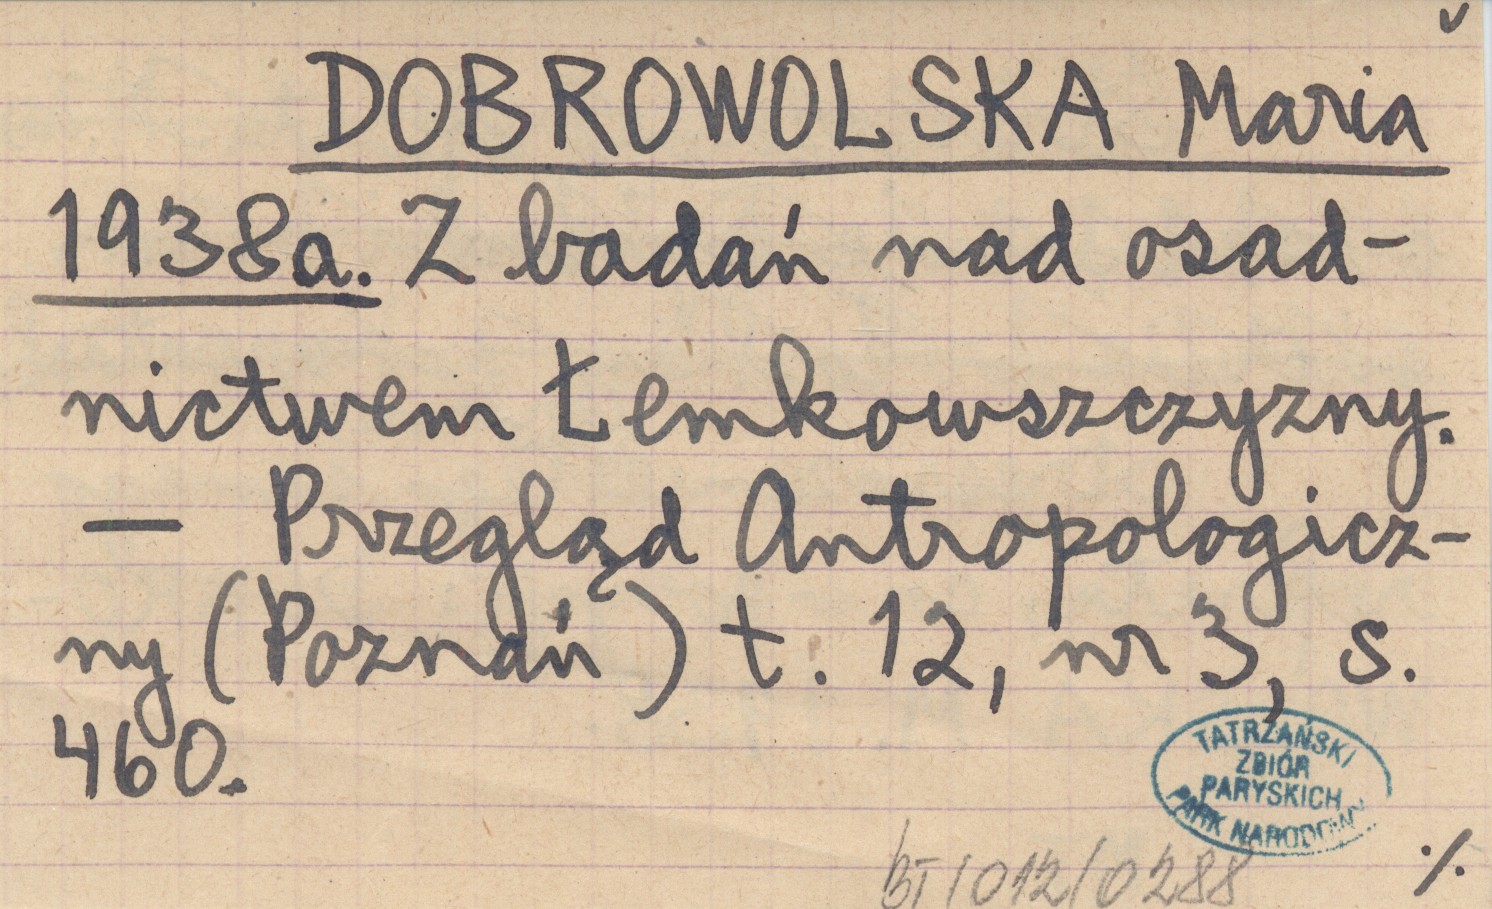 DOBROWOLSKA Maria
1938a. Z badań nad osad-
nictwem Łemkowszczyzny.
— Przegląd Antropologicz-
ny (Poznań) t. 12, nr 3, s.
460.
TATRZAŃSKI
ZBIÓR
PARYSKICH
PARK NARODOWY
BT/012/0288
./.